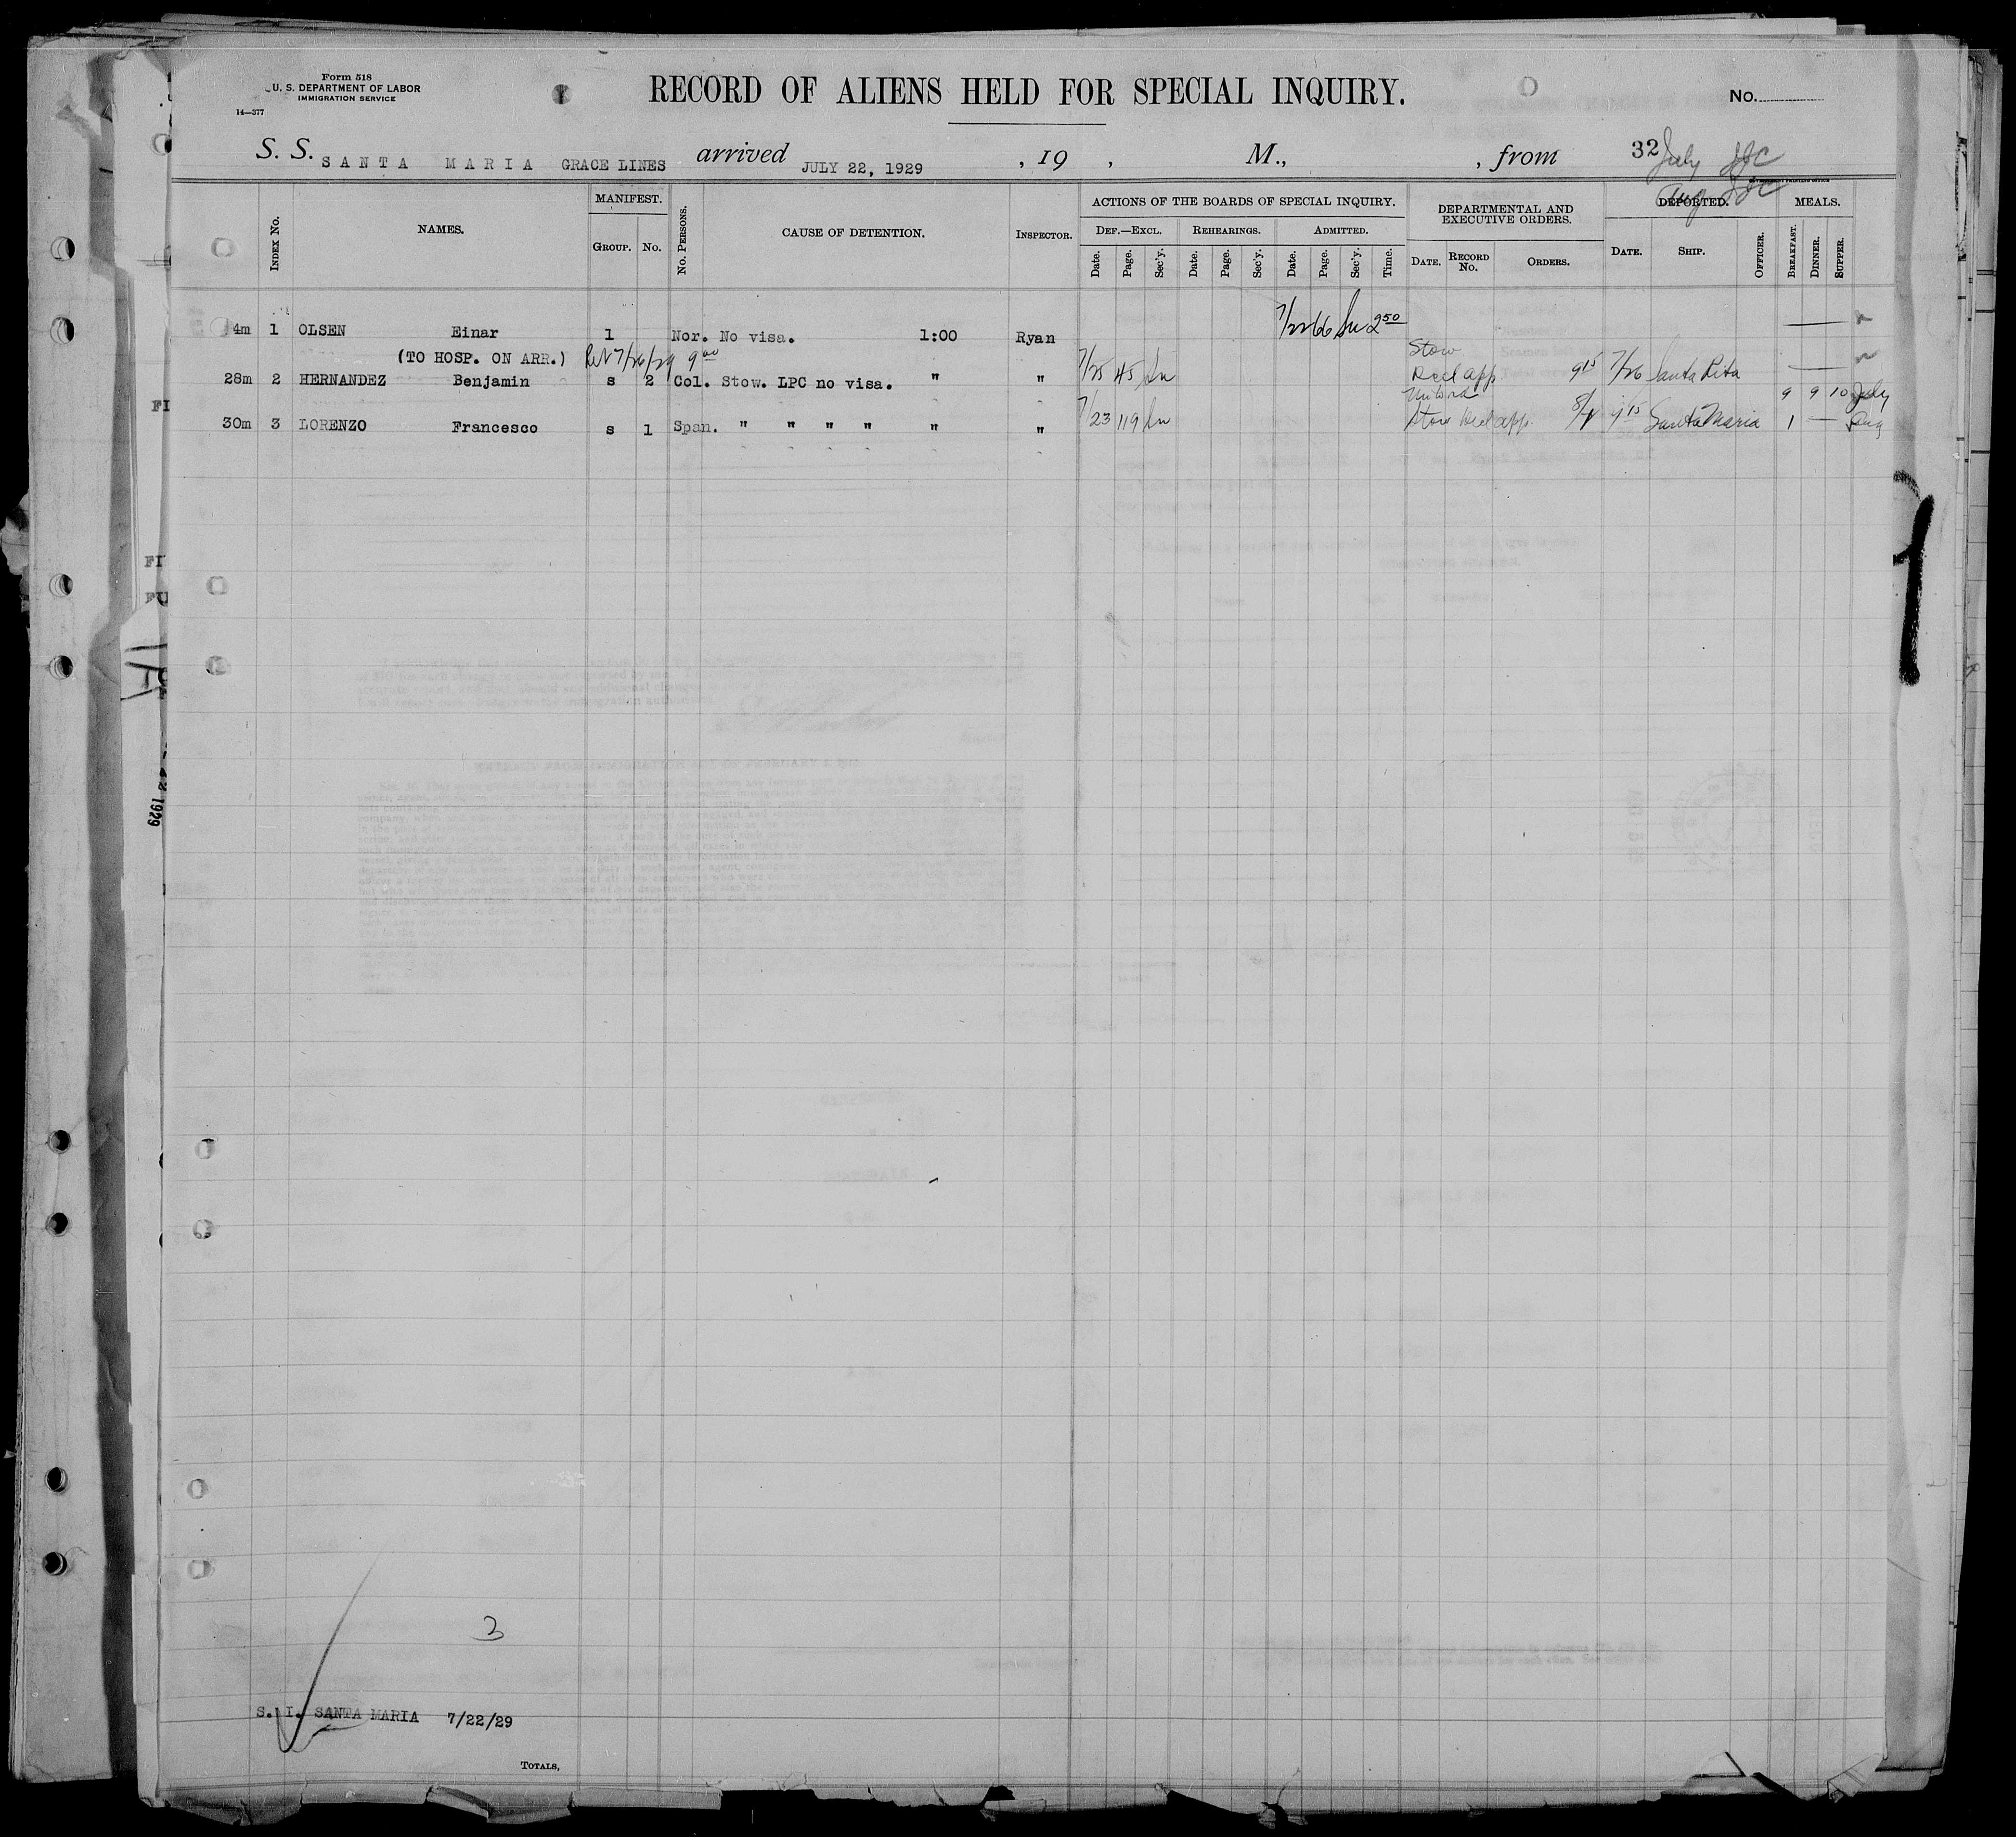 Form 518
U. S. DEPARTMENT OF LABOR
IMMIGRATION SERVICE
14—377
RECORD OF ALIENS HELD FOR SPECIAL INQUIRY.
No.
S. S. SANTA MARIA GRACE LINES arrived JULY 22, 1929 , 19 , M., , from 32 July
Aug
INDEX No.
NAMES.
MANIFEST.
GROUP. No.
No. PERSONS.
CAUSE OF DETENTION.
INSPECTOR.
ACTIONS OF THE BOARDS OF SPECIAL INQUIRY.
DEF.—EXCL. REHEARINGS. ADMITTED.
Date. Page. Sec'y. Date. Page. Sec'y. Date. Page. Sec'y. Time.
DEPARTMENTAL AND EXECUTIVE ORDERS.
DATE. RECORD No. ORDERS.
DEPORTED.
DATE. SHIP. OFFICER.
MEALS.
BREAKFAST. DINNER. SUPPER.
4m 1 OLSEN Einar 1 Nor. No visa. 1:00 Ryan 7/22 66 2 50
(TO HOSP. ON ARR.) Ret 7/26/29 9 00
Stow
28m 2 HERNANDEZ Benjamin s 2 Col. Stow. LPC no visa. " " 7/25 45 app 9 15 7/26 Santa Rita
9 9 10 July
30m 3 LORENZO Francesco s 1 Span. " " " " " " 7/23 119 Stow app. 8/1 Santa Maria 1 — Aug
3
S. I. SANTA MARIA 7/22/29
TOTALS,
FI
FI
FU
1929